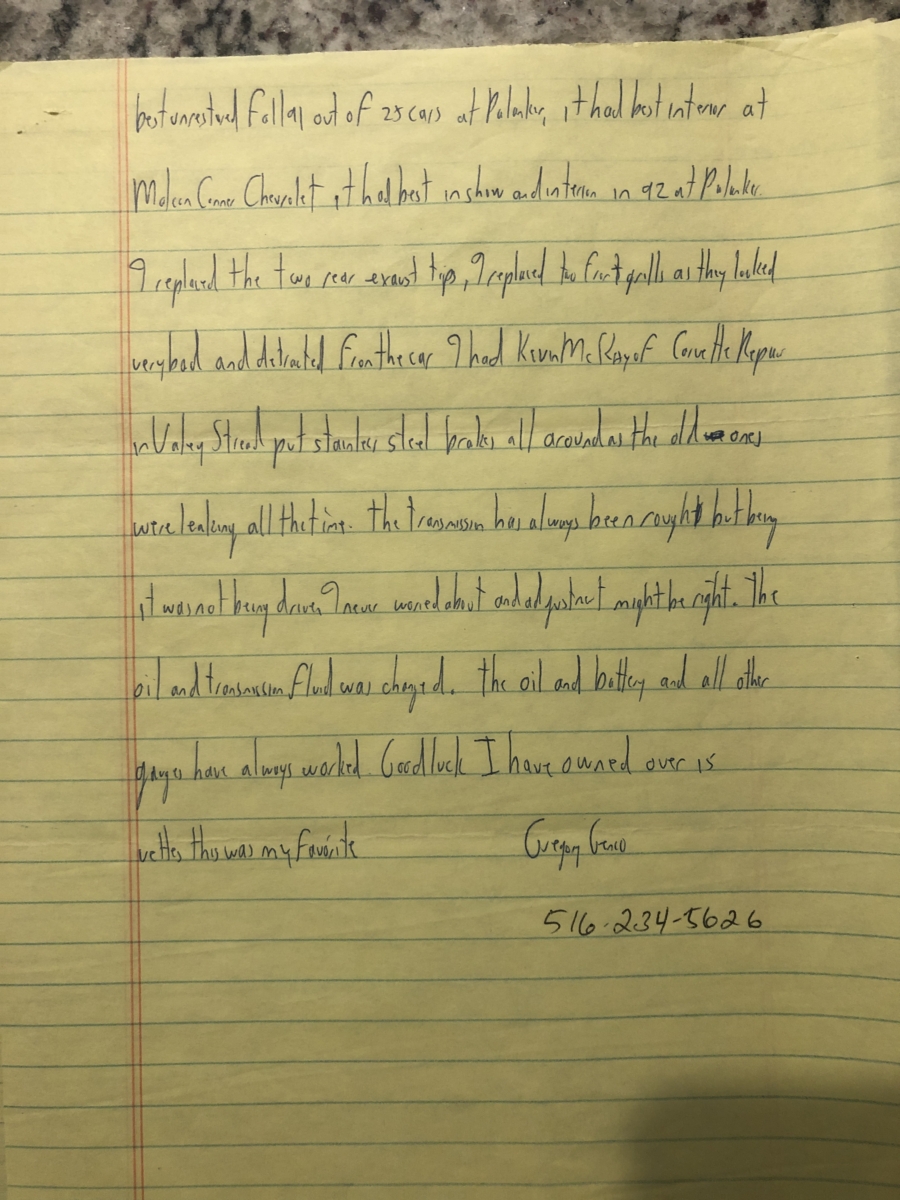 best unrestored Fall 91 out of 25 cars at Polanker, it had best interior at
Connor Chevrolet, it had best in show and interior in 92 at Polanker.
I replaced the two rear exaust tips, I replaced two front grills as they looked
very bad and detracted from the car I had Kevin McKay of Corvette Repair
in Valey Stream put stainless steel brakes all around as the old ones
were leaking all the time. The transmission has always been rough but being
it was not being driven I never worried about and adjustment might be right. The
oil and transmission fluid was changed. The oil and battery and all other
gayes have always worked. Good luck I have owned over 15
vettes this was my favorite Gregory Genco
516-234-5626